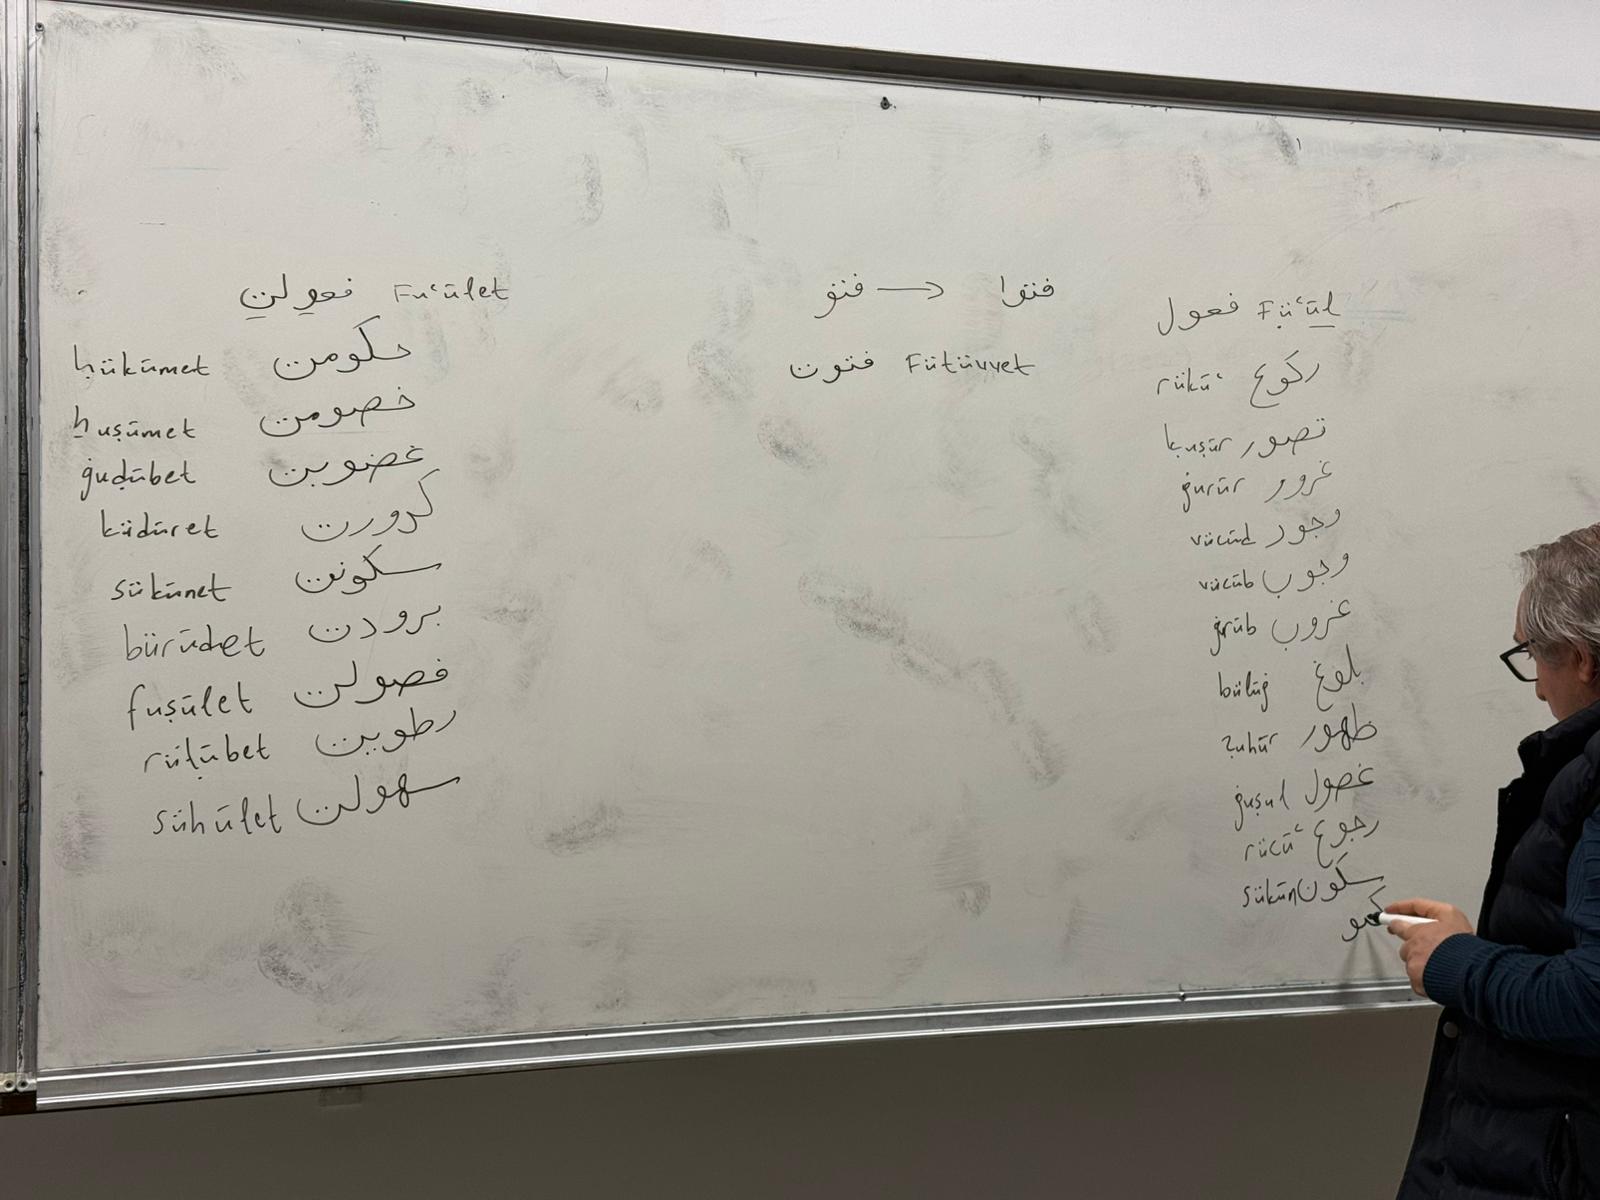 فعولت Fu‘ūlet
ḥükūmet حكومت
ḫuṣūmet خصومت
ġuḍūbet غضوبت
küdūret كدورت
sükūnet سكونت
bürūdet برودت
fuṣūlet فصولت
rüṭūbet رطوبت
sühūlet سهولت
فتوا → فتو
فتوت Fütüvvet
فعول Fü‘ūl
rükū‘ ركوع
ḳuṣūr قصور
ġurūr غرور
vücūd وجود
vücūb وجوب
ġrūb غروب
bülūġ بلوغ
ẓuhūr ظهور
ġuṣul غصول
rücū‘ رجوع
sükūn سكون